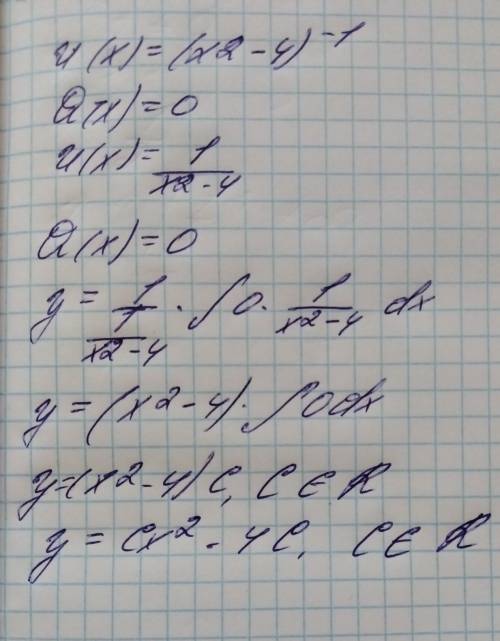 u(x) = (x2 - 4)^-1
Q(x) = 0
u(x) = 1/(x2 - 4)
Q(x) = 0
y = 1/(1/(x2 - 4)) · ∫0 · 1/(x2 - 4) dx
y = (x2 - 4) · ∫0dx
y = (x2 - 4) C, C ∈ R
y = Cx² - 4C, C ∈ R